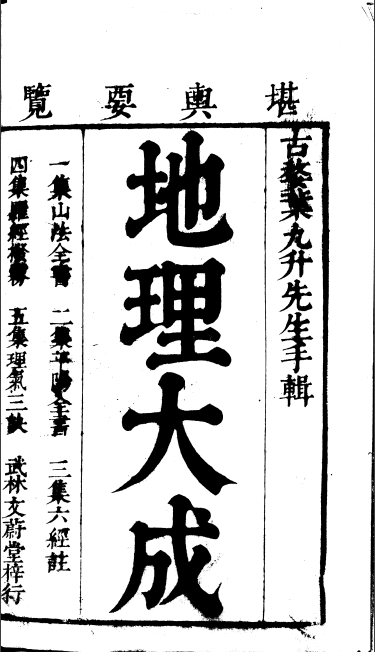 堪輿要覽
古婺葉九升先生手輯
地理大成
一集山法全書 二集平陽全書 三集六經註
四集羅經 五集理氣三訣 武林文蔚堂梓行